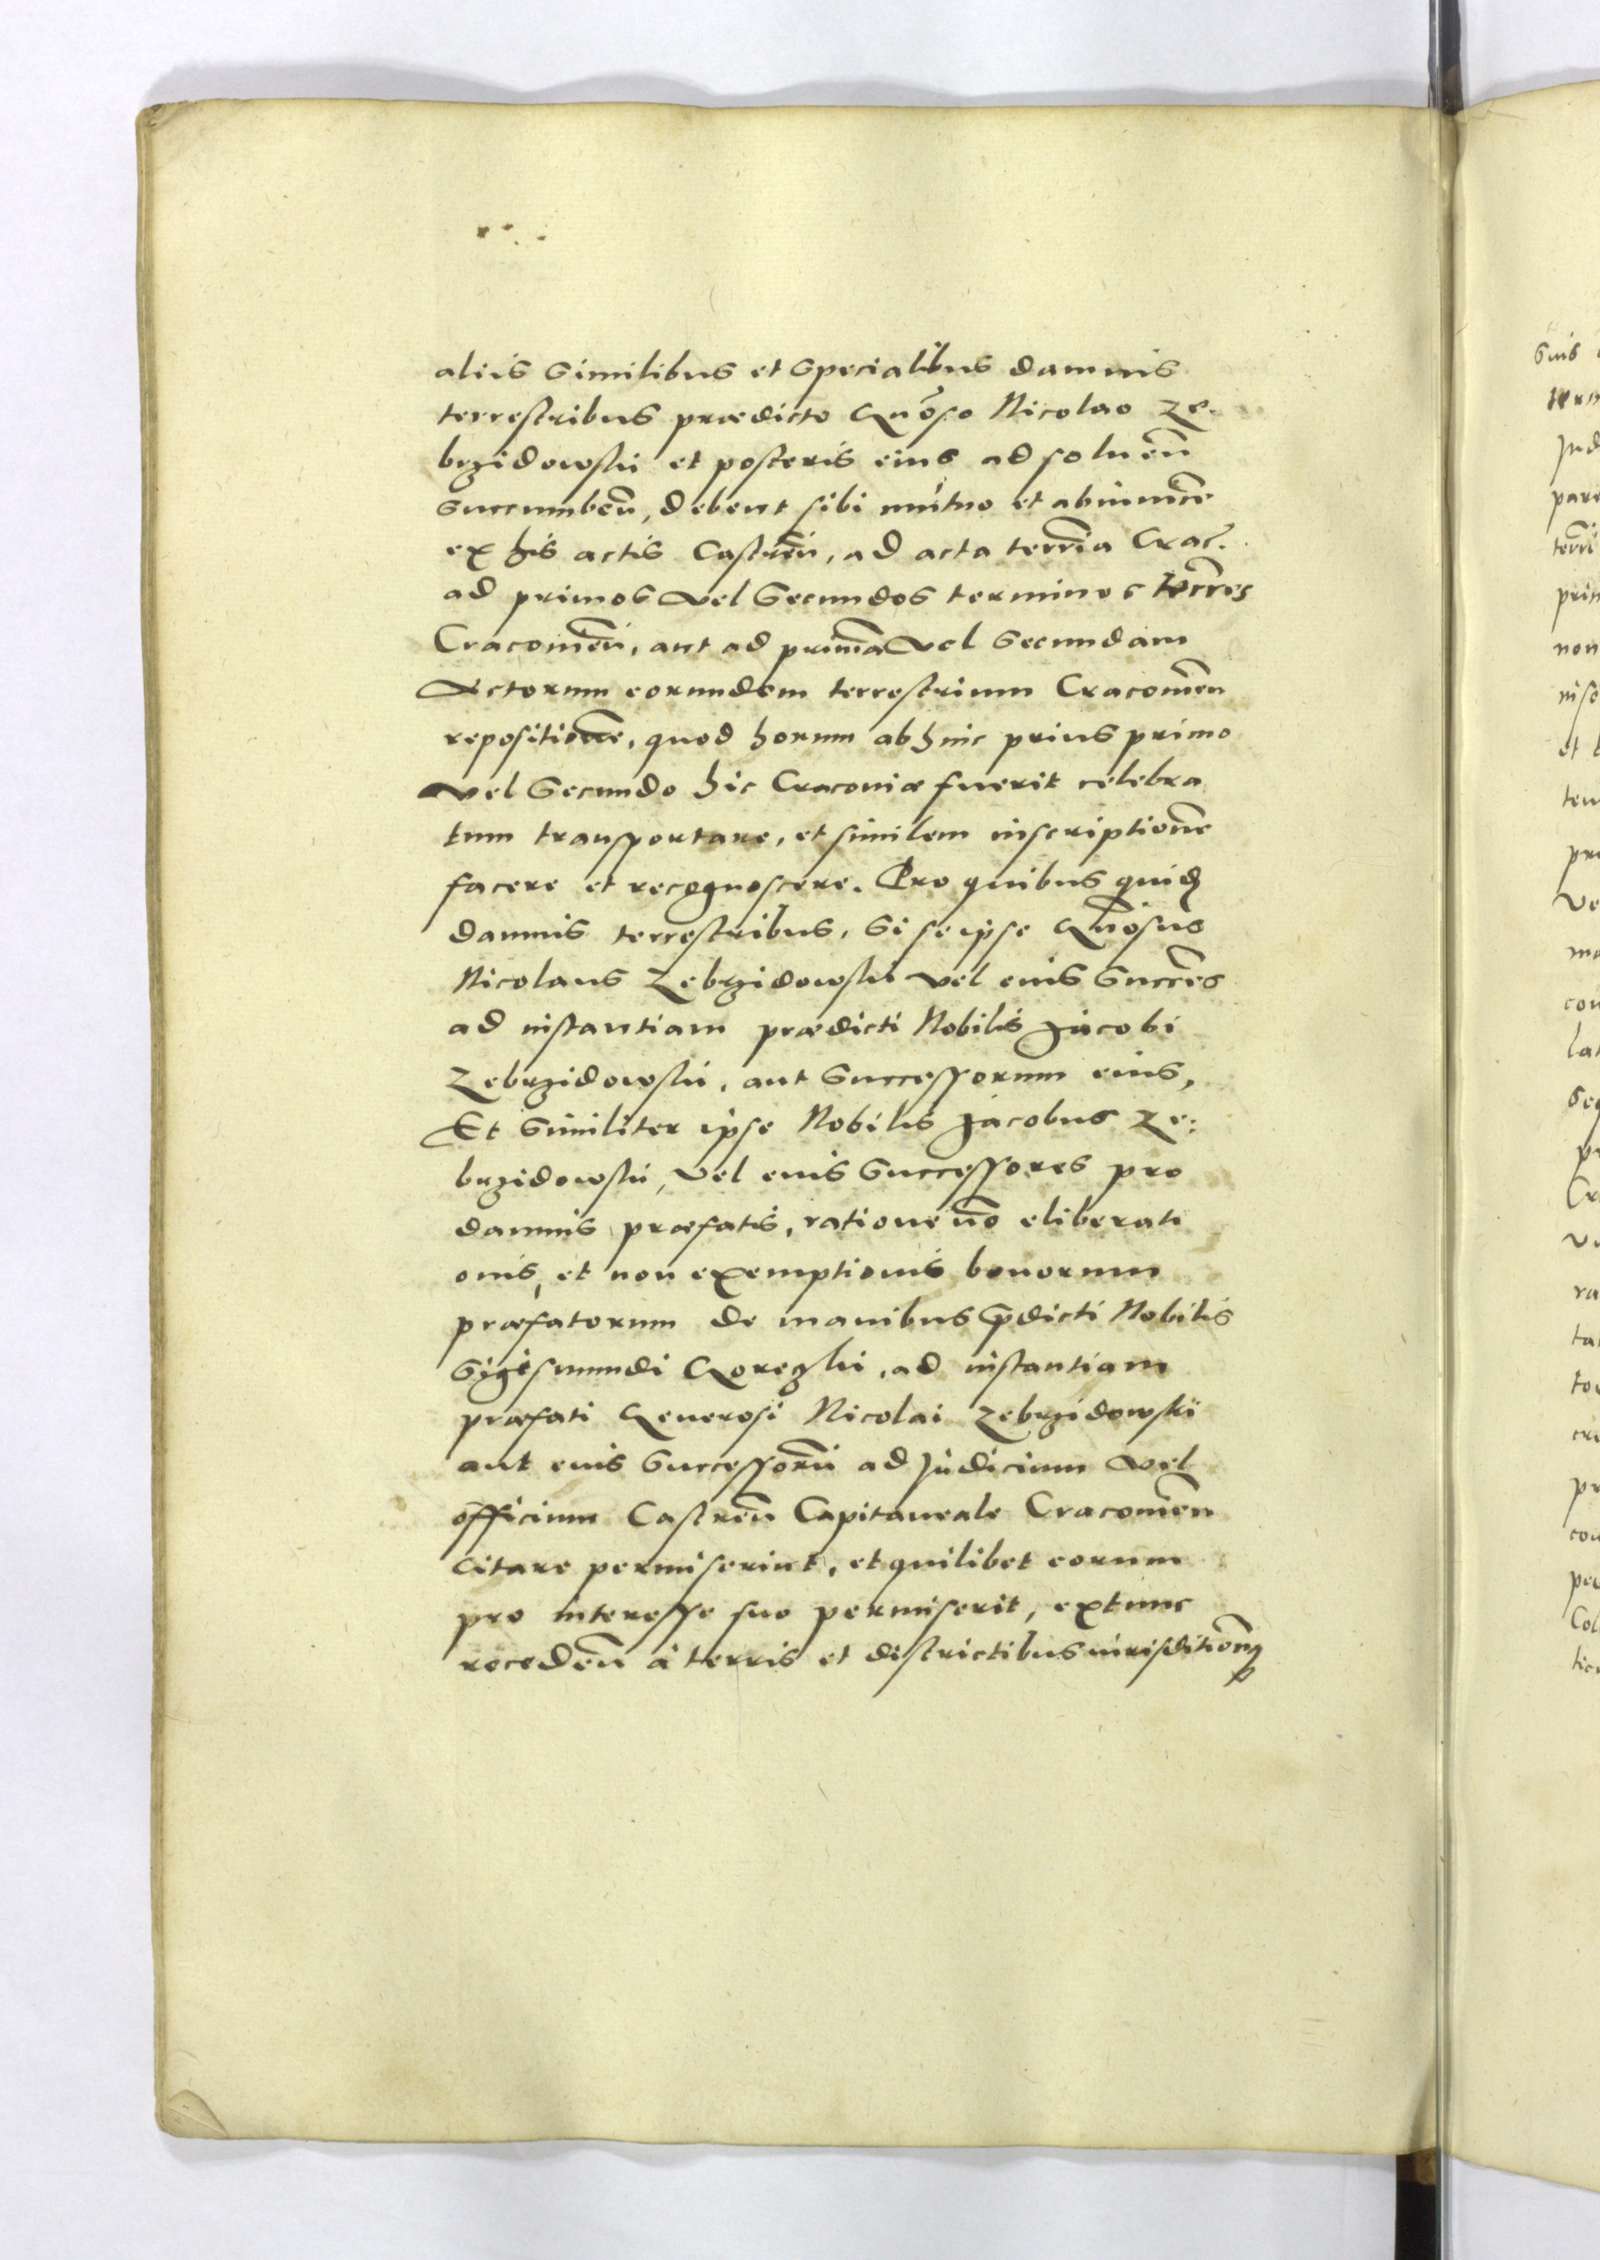 aliis similibus et specialibus damnis
terrestribus prædicto Gñoso Nicolao Ze-
brzidowski et posteris eius ad soluen̄
succumben̄, debent sibi mutuo et abinuice̅
ex his actis Castren̄, ad acta terr̅ia Crac̅.
ad primos vel secundos terminos terr̅es
Cracouien̄, aut ad prima̅ vel secundam
Actorum eorundem terrestrium Cracouien̄
repositione̅, quod horum abhinc prius primo
vel secundo hic Cracouiæ fuerit celebra
tum transportare, et similem inscriptione̅
facere et recognoscere. Pro quibus quid̨
damnis terrestribus, si se ipse Gn̅osus
Nicolaus Zebrzidowski vel eius succ̅res
ad instantiam prædicti Nobilis Jacobi
Zebrzidowski, aut successorum eius,
Et similiter ipse Nobilis Jacobus Ze:
brzidowski, vel eius successores pro
damnis præfatis, ratione u̅o eliberati
onis, et non exemptionis bonorum
præfatorum de manibus p̅dicti Nobilis
Sigismundi Goreczki, ad instantiam
præfati Generosi Nicolai Zebrzidowski
aut eius successoru̅ ad Judicium vel
officium Castren̄ Capitaneale Cracouien̄
citare permiserint, et quilibet eorum
pro interesse suo permiserit, extunc
receden̄ à terris et districtibus iurisditionq̨